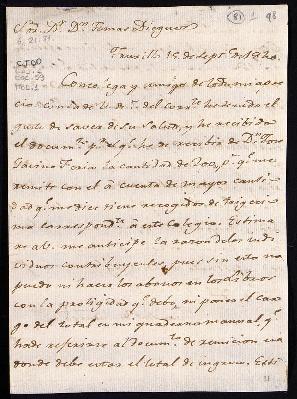 Sor. Dr. Dn. Tomas Dieguez
81 1 98
Truxillo 15 de Septe. de 1820.
Concolega y amigo de toda mi apre
cio: con la de U. de del corrte. he tenido el
gusto de saver de su salud, y he recibido
el documto. pr. el qe. he de recibir de Dn. Jose
la cantidad de 200 ps. qe. me
remite con el á cuenta de mayor canti
dad qe. me dice tiene recogidos de
ma correspondte. á este Colegio. Estima
re á U. me anticipe la razon de los indi
viduos contribuyentes, pues sin esto no
puedo ni hacer los abonos en los Libros
con la prolijidad qe. debo, ni poner el car
go del total en mi quaderno manual, qe.
hade referirse al documto. de remision en
donde debe estar el total de ingreso. Esti